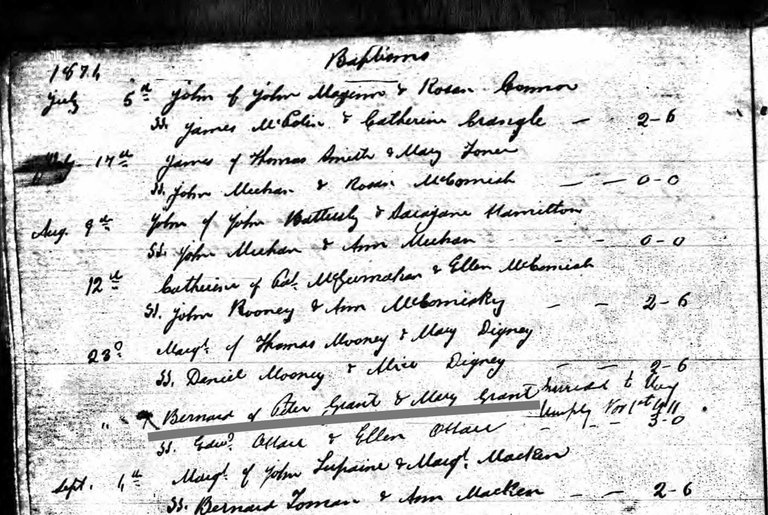 1874 Baptisms
July 5th John of John Maginn & Rosan Connor
SS. James McPolin & Catherine Crangle — — 2-6
17th James of Thomas Smith & Mary Toner
SS. John Meehan & Rosan McComish — — 0-0
Aug. 9th John of John & Sarajane Hamilton
SS. John Meehan & Ann Meehan 0-0
12th Catherine of Pat. McGurnahan & Ellen McComish
SS. John Rooney & Ann McComisky — — 2-6
23d Margt. of Thomas Mooney & Mary Digney
SS. Daniel Mooney & Alice Digney — — 2-6
" Bernard of Peter Grant & Mary Grant married to
SS. Edwd. OHare & Ellen OHare - - 3-0
Sept. Margt. of John & Margt. Macken
SS. Bernard Toman & Ann Macken — — 2-6